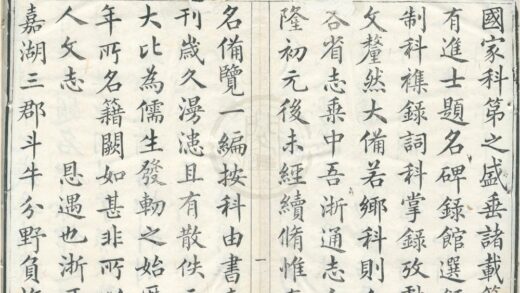 國家科第之盛垂諸載
有進士題名碑錄館選
制科襍錄詞科掌錄攷
文釐然大備若鄉科則
各省志乘中吾浙通志
隆初元後未經續脩惟
一
名備覽一編按科由書
刊歲久漫漶且有散佚
大比為儒生發軔之始
年所名籍闕如甚非所
人文志 恩遇也浙
嘉湖三郡斗牛分野負